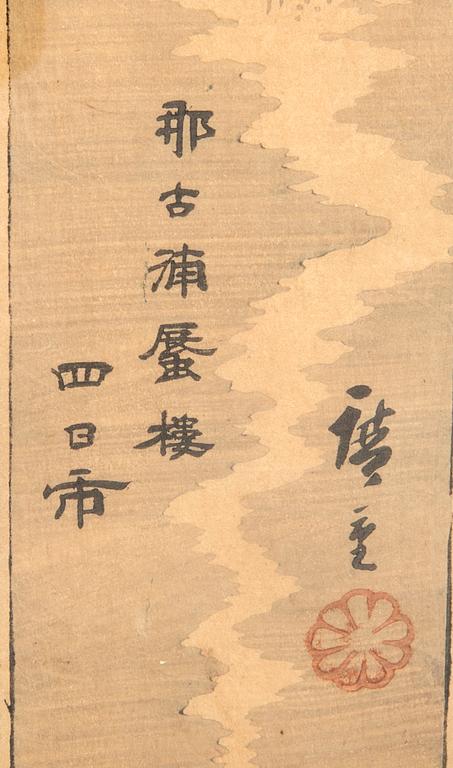 廣重
那古浦蜃樓
四日市